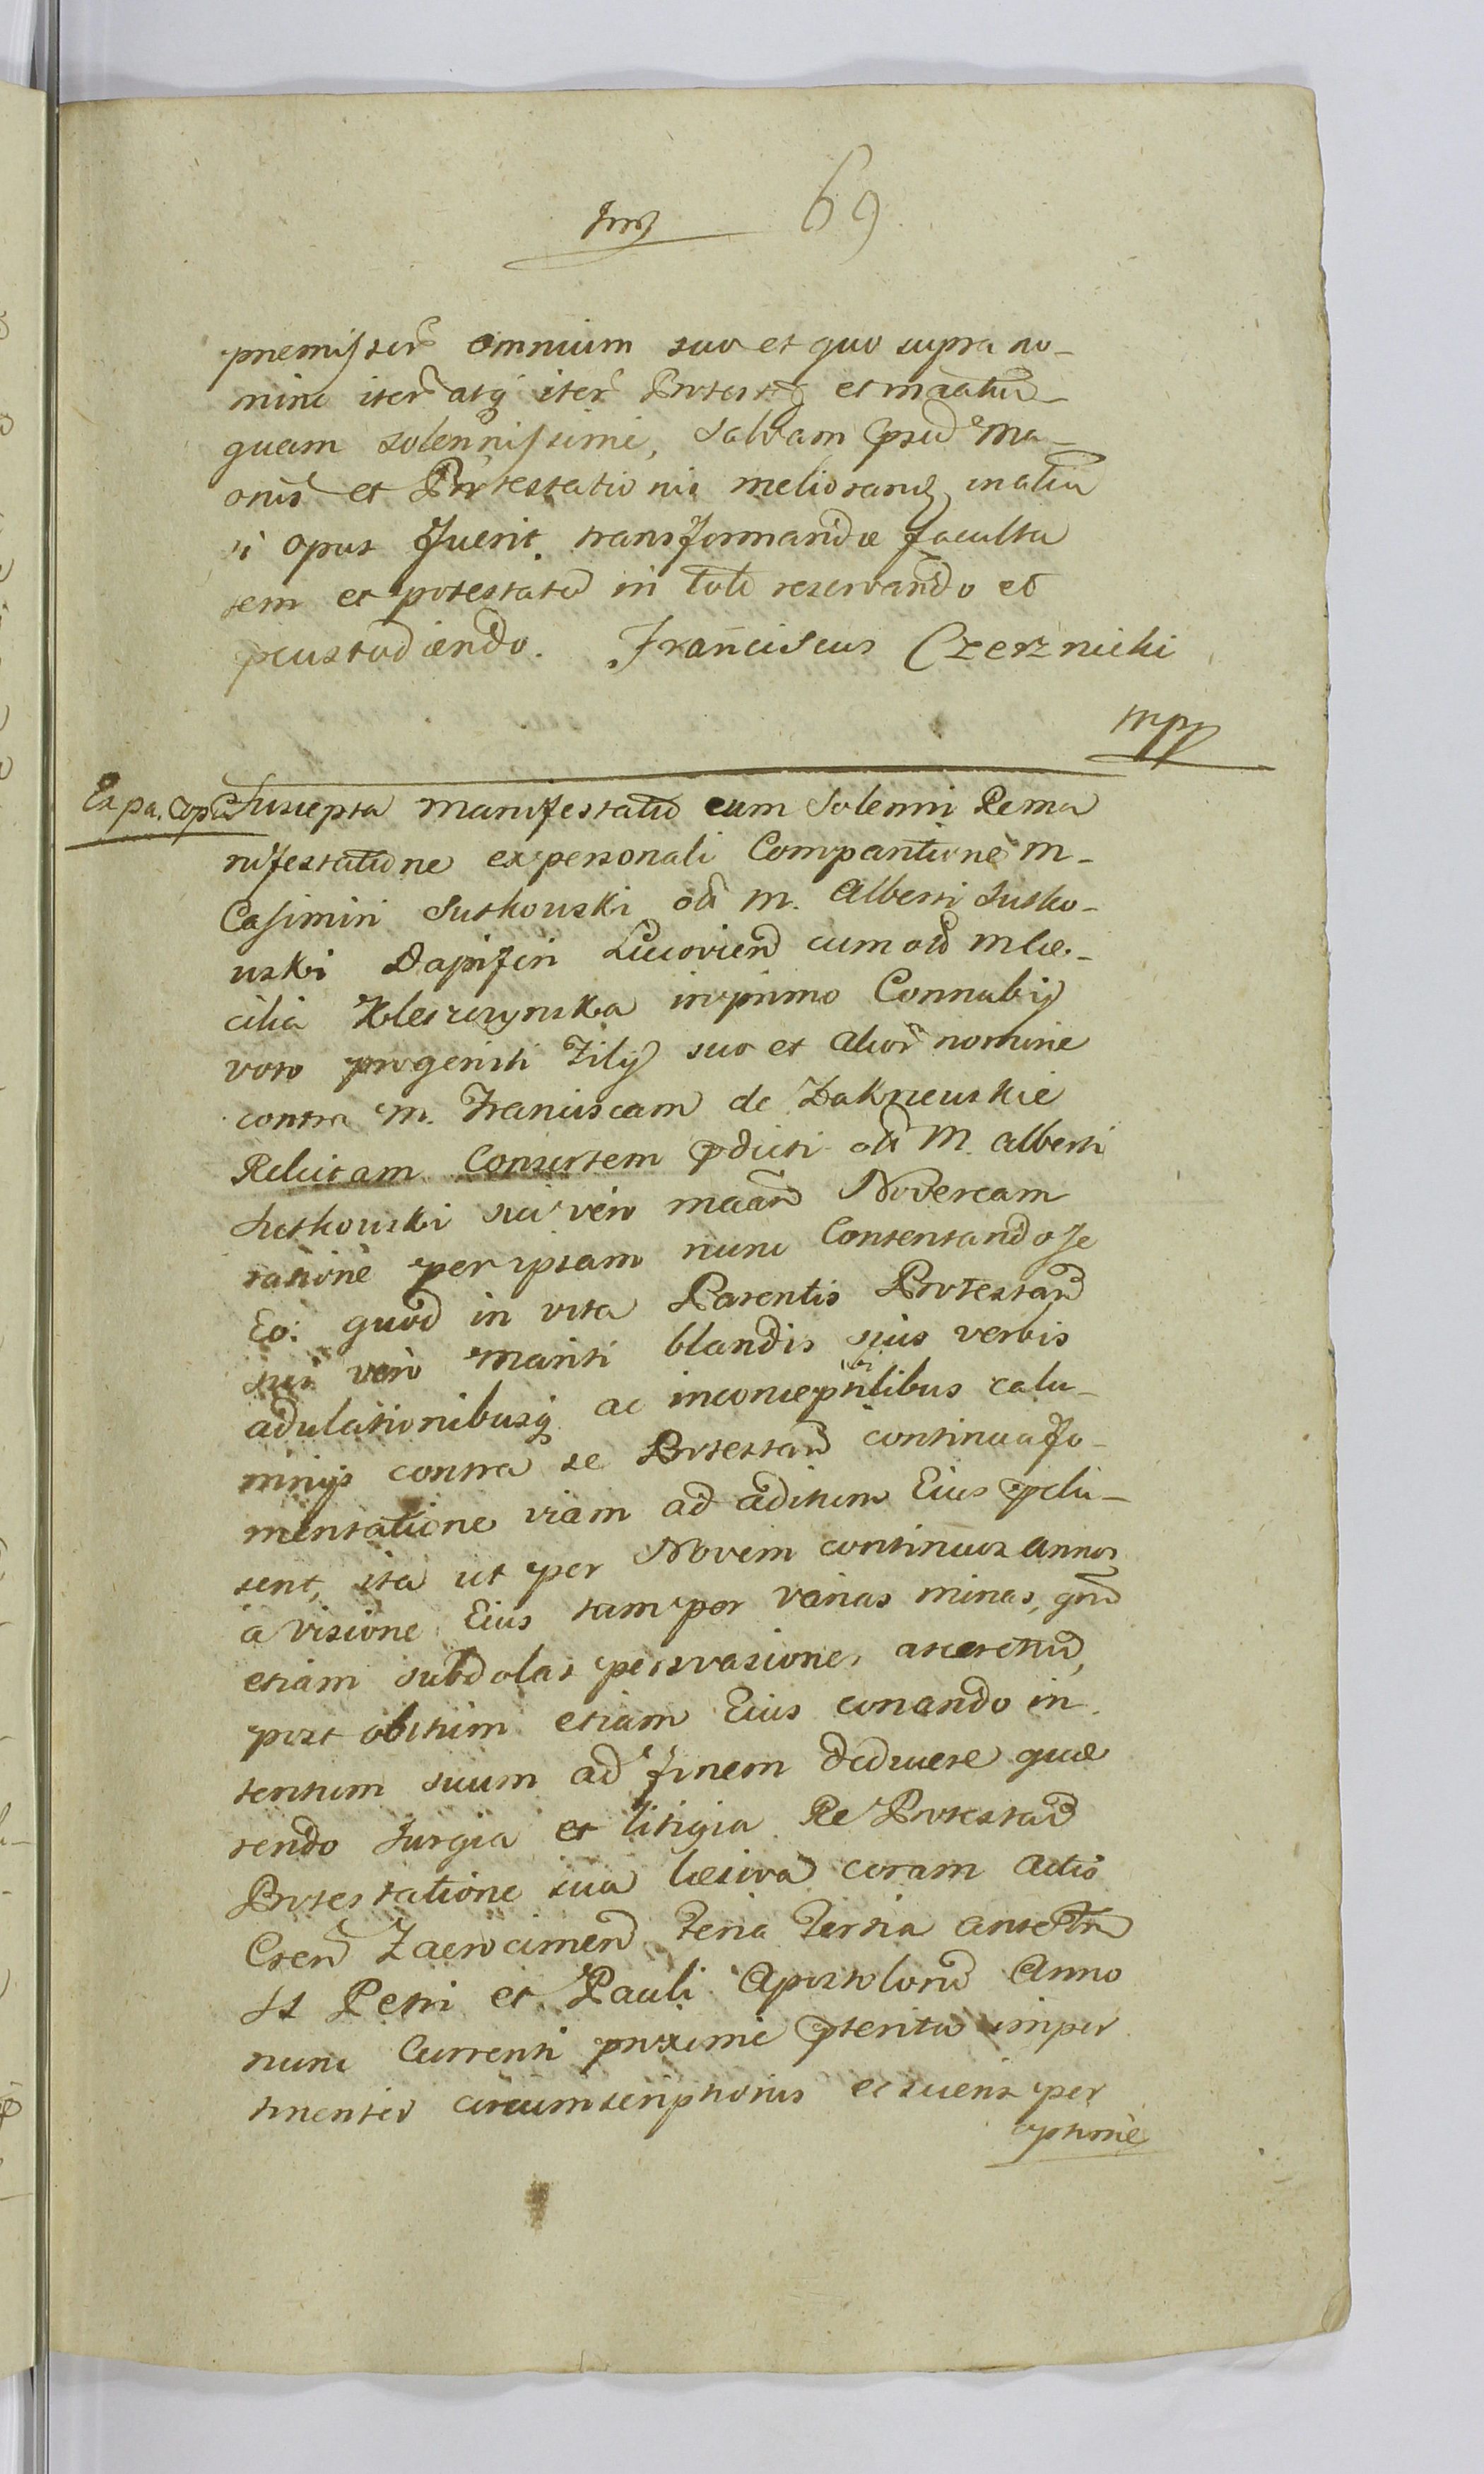 69
premissor̃ omnium suo et quo supra no-
mine iter̃ atq̃ iter̃ Protest et
quam solennissime, Salvam
onis et Protestationis meliorand in aliã
si opus fuerit transformandæ faculta
tem et potestatẽ in toto reservando et
pcustodiendo. Franciscus Czerznicki
mpp
Exa pa. Copia Suscepta Manifestatio cum Solenni Rema
nifestatione ex personali Comparitione M-
Casimiri Sutkouski oli M. Alberti Sutko-
uski Dapiferi cum oli M Cæ-
cilia Kleszczynska in primo Connubij
voto progeniti Filij suo et alior̃ nomine
contra M. Franciscam de Zakrzeuskie
Relictam Consortem pdicti oli M. Alberti
Sutkouski sui vero Novercam
ratione per ipsam nunc Contentando se
Eo: quod in vita Parentis Protestan
sui vero Mariti blandis suis verbis
adulationibusq̃ ac inconceptibilibus calu-
mnijs contra se Protestan continua fo-
mentatione viam ad aditum Eius pclu-
sent, ita ut per Novem continuos annos
a visione Eius tam per varias minas, qm
etiam subdolas persvasiones arceretur,
post obitum etiam Eius conando in
tentum suum ad finem deducere quæ
rendo Jurgia et litigia Re Protestan
Protestatione sua læsiva coram Actis
Cren Zacrocimen Feria Tertia ante Fm
SS Petri et Pauli Apostolorũ Anno
nunc Currenti proxime pterita imper
tinenter circumscriptorius et sciens per
optime